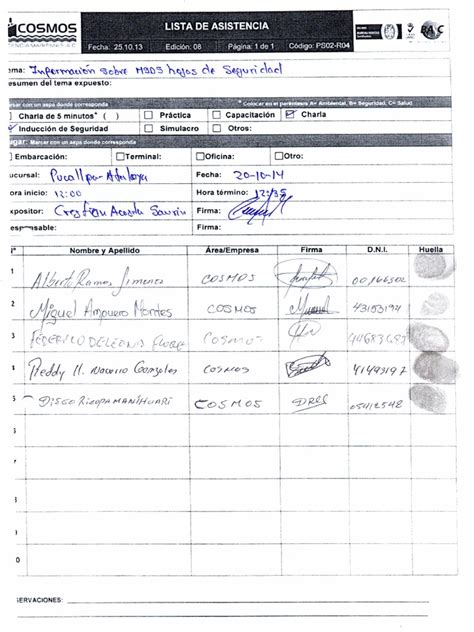 COSMOS
AGENCIA MARITIMA S.A.C.
LISTA DE ASISTENCIA
Fecha: 25.10.13 Edición: 08 Página: 1 de 1 Código: PS02-R04
BASC
ema: Información sobre MSDS hojas de Seguridad
esumen del tema expuesto:
arcar con un aspa donde corresponda * Colocar en el paréntesis A= Ambiental, B= Seguridad, C= Salud
Charla de 5 minutos* ( ) Práctica Capacitación Charla
Inducción de Seguridad Simulacro Otros:
ugar: Marcar con un aspa donde corresponda
Embarcación: Terminal: Oficina: Otro:
ucursal: Pucallpa-Atalaya Fecha: 20-10-14
ora inicio: 12:00 Hora término: 12:35
xpositor: Firma:
esponsable: Firma:
N° Nombre y Apellido Área/Empresa Firma D.N.I. Huella
1 Alberto Ramos Jimenez COSMOS
2 Miguel Ampuero Montes COSMOS 43153194
3 FEDERICO DELEONIS FLORES COSMOS 44683683
4 Freddy H. Nacerio Gonzales COSMOS 41493197
5 DIEGO RIZOPAMANIHUARI COSMOS 05412548
ERVACIONES: